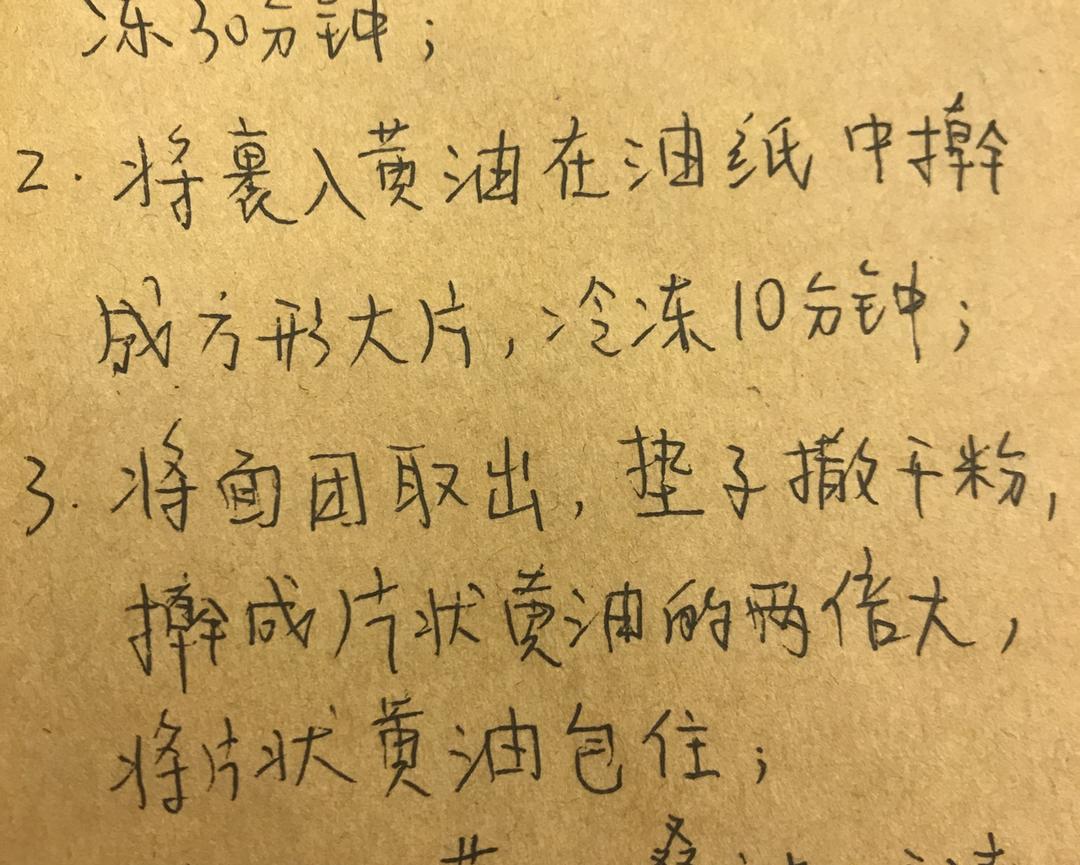 冻30分钟；
2. 将裹入黄油在油纸中擀
成方形大片，冷冻10分钟；
3. 将面团取出，垫子撒干粉，
擀成片状黄油的两倍大，
将片状黄油包住；